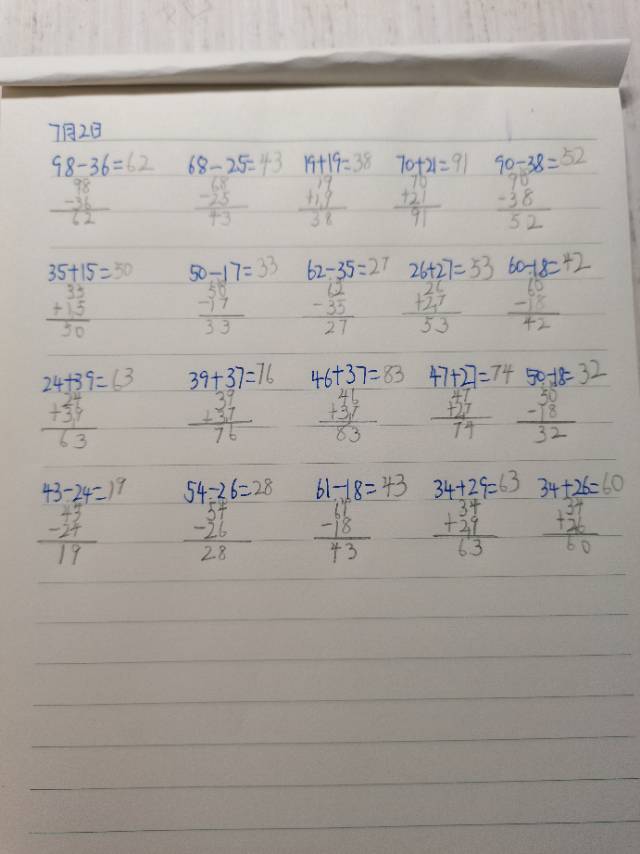 7月2日
98-36=62 68-25=43 19+19=38 70+21=91 90-38=52
98 68 19 70 90
-36 -25 +19 +21 -38
62 43 38 91 52
35+15=50 50-17=33 62-35=27 26+27=53 60-18=42
35 50 62 26 60
+15 -17 -35 +27 -18
50 33 27 53 42
24+39=63 39+37=76 46+37=83 47+27=74 50-18=32
24 39 46 47 50
+39 +37 +37 +27 -18
63 76 83 74 32
43-24=19 54-26=28 61-18=43 34+29=63 34+26=60
43 54 61 34 34
-24 -26 -18 +29 +26
19 28 43 63 60